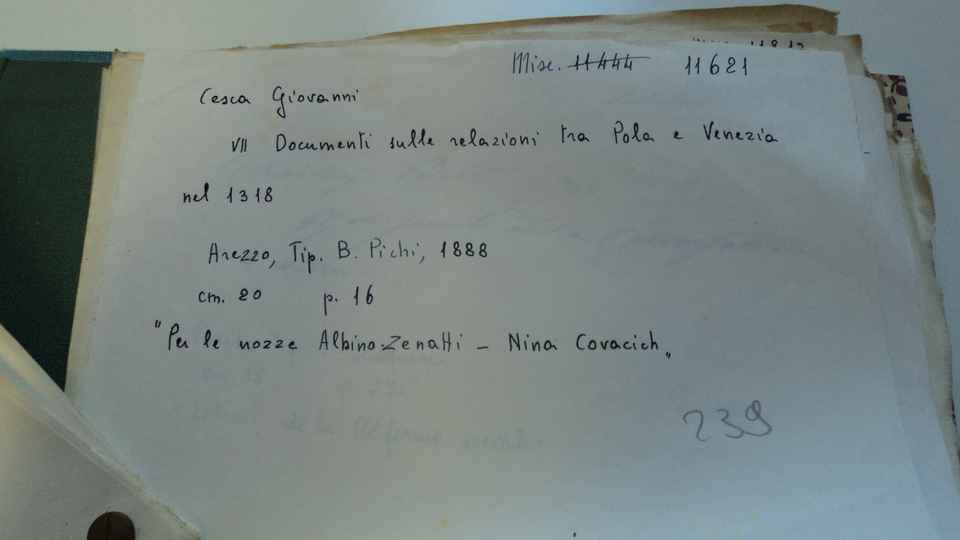 Misc. 11444 11621
Cesca Giovanni
VII Documenti sulle relazioni tra Pola e Venezia
nel 1318
Arezzo, Tip. B. Pichi, 1888
cm. 20 p. 16
"Per le nozze Albino Zenatti - Nina Covacich„
239